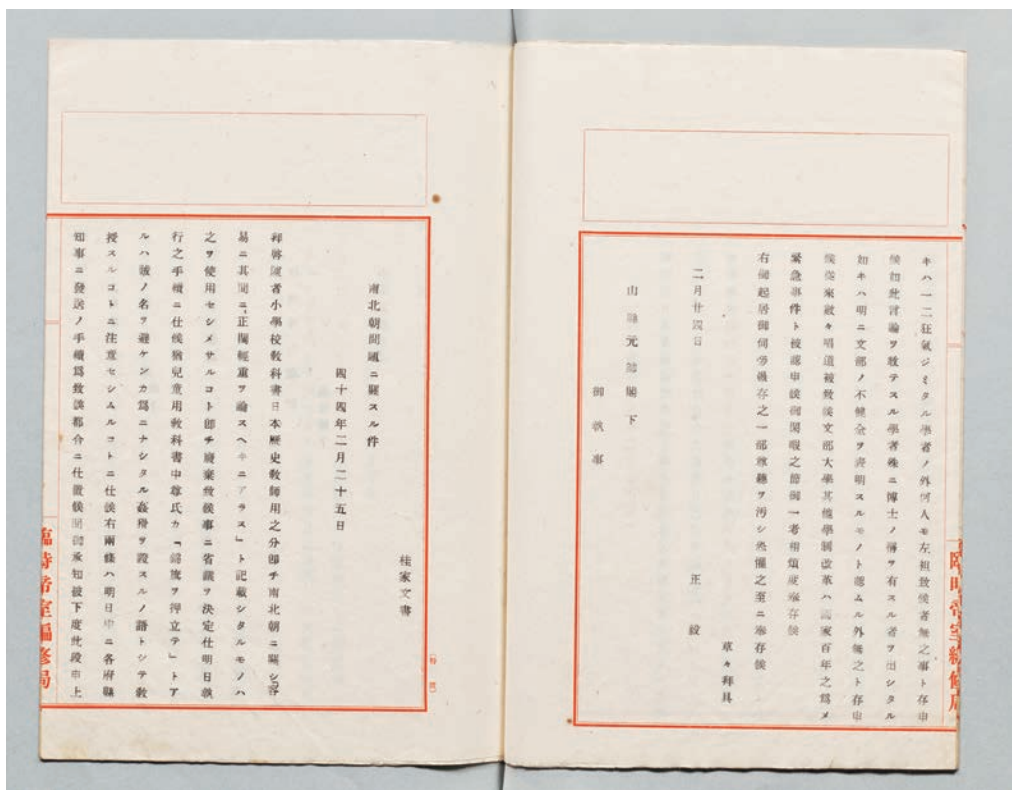 キハ一二狂氣ジミタル學者ノ外何人モ左袒致候者無之事ト存申
候如此討論ヲ敢テスル學者殊ニ博士ノ稱ヲ有スル者ヲ出シタル
如キハ明ニ文部ノ不健全ヲ表明スルモノト認ムル外無之ト存申
候從來敢々唱道被致候文部大學其他學制改革ハ國家百年之爲メ
緊急事件ト被認申候御閑暇之節御一考相煩度奉存候
右御起居御伺旁愚存之一部尊聽ヲ汚シ恐懼之至ニ奉存候
草々拜具
二月廿四日
正毅
山縣元帥閣下
御執事
臨時帝室編修局
桂家文書
南北朝問題ニ關スル件
四十四年二月二十五日
拜啓陳者小學校教科書日本歷史教師用之分即チ南北朝ニ關シ「容
易ニ其間ニ、正閏輕重ヲ論スヘキニアラス」ト記載シタルモノハ
之ヲ使用セシメサルコト即チ廢棄致候事ニ省議ヲ決定仕明日執
行之手續ニ仕候猶兒童用教科書中尊氏カ「錦旗ヲ押立テ」トア
ルハ賊ノ名ヲ避ケンカ爲ニナシタル姦猾ヲ證スルノ語トシテ教
授スルコトニ注意セシムルコトニ仕候右兩條ハ明日中ニ各府縣
知事ニ發送ノ手續爲致候都合ニ仕置候間御承知被下度此段申上
臨時帝室編修局